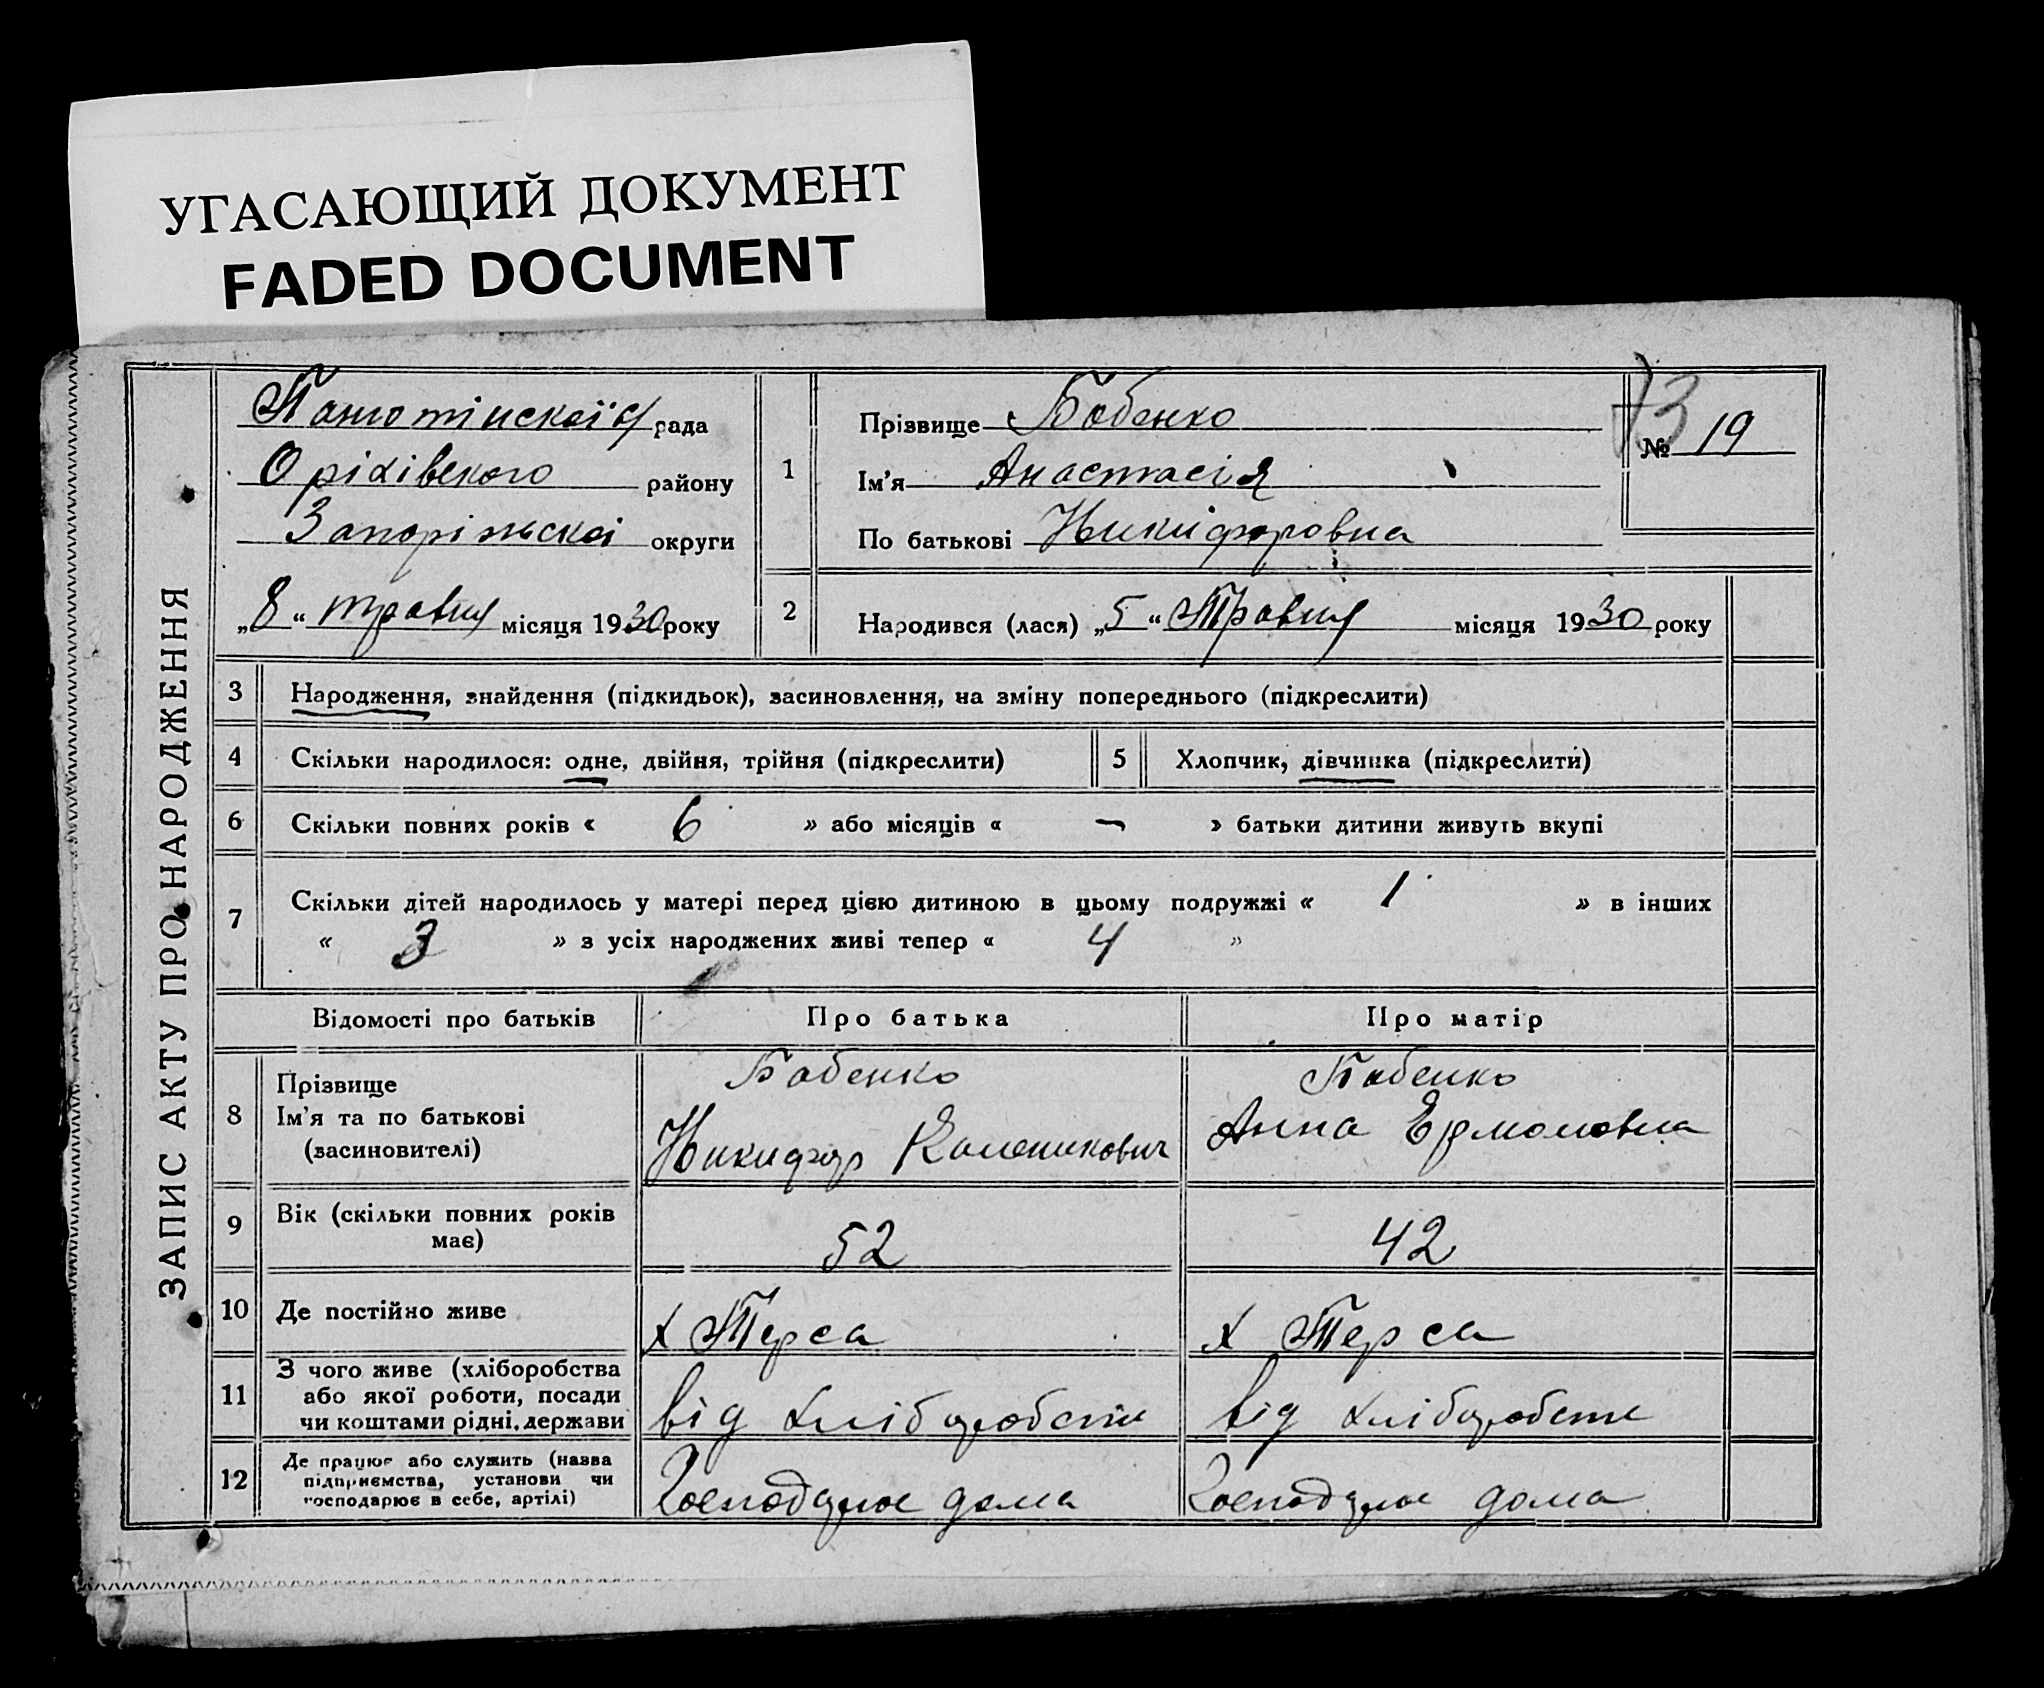 УГАСАЮЩИЙ ДОКУМЕНТ
FADED DOCUMENT
ЗАПИС АКТУ ПРО НАРОДЖЕННЯ
с/рада
Оріхівского району
Запоріжскоі округи
„8“ травня місяця 1930 року
1
Прізвище Бабенко
Ім'я Анастасія
По батькові Никифоровна
№ 19
73
2
Народився (лася) „5“ Травня місяця 1930 року
3 Народження, знайдення (підкидьок), засиновлення, на зміну попереднього (підкреслити)
4 Скільки народилося: одне, двійня, трійня (підкреслити) 5 Хлопчик, дівчинка (підкреслити)
6 Скільки повних років « 6 » або місяців « – » батьки дитини живуть вкупі
7 Скільки дітей народилось у матері перед цією дитиною в цьому подружжі « 1 » в інших
« 3 » з усіх народжених живі тепер « 4 »
Відомості про батьків Про батька Про матір
8 Прізвище
Ім'я та по батькові
(засиновителі)
Бабенко
Никифор Каленикович
Бабенко
Анна Ермоловна
9 Вік (скільки повних років
має)
52 42
10 Де постійно живе х Терса х Терса
11 З чого живе (хліборобства
або якої роботи, посади
чи коштами рідні, держави
від хліборобств від хліборобств
12 Де працює або служить (назва
підприємства, установи чи
господарює в себе, артілі)
Господарює дома Господарює дома